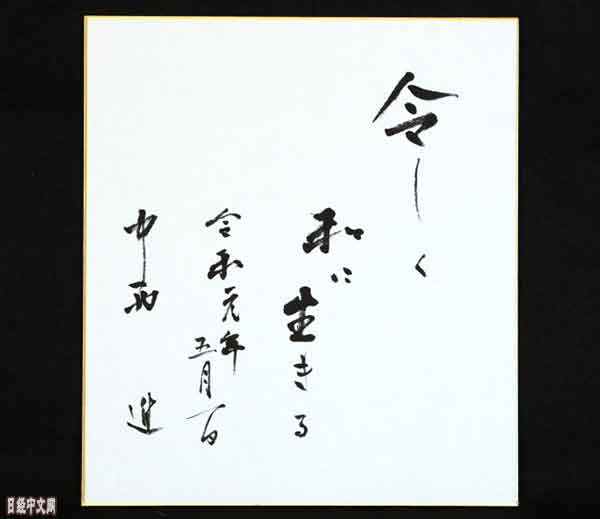 令しく
和に生きる
令和元年
五月一日
中西 進
日经中文网